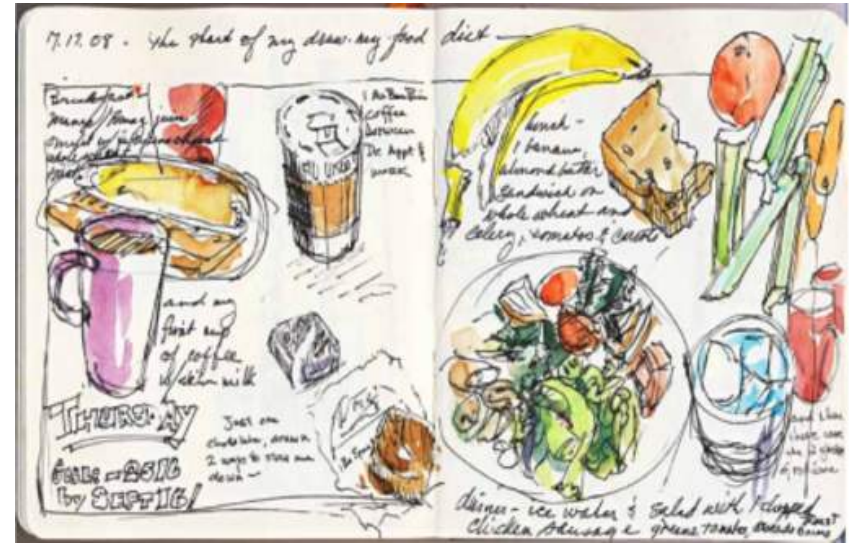 7.17.08 - The start of my draw-my-food diet -
Breakfast -
whole wheat
1 Au Bon Pain
coffee
between
Dr. Appt &
work
and my
first cup
of coffee
w/ skim milk
THURSDAY
by SEPT 16!
Just one
chocolate, drawn
2 ways to slow me
down -
lunch -
1 banana,
almond butter
sandwich on
whole wheat and
celery, tomatos & carrots
and then
there were
the 2 glasses
of red wine
dinner - ice water & salad with 1 chopped
chicken sausage greens tomato, avocado